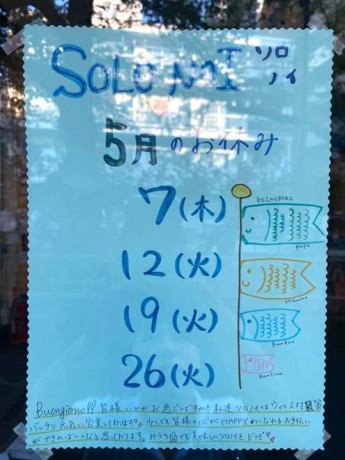 SOLO NOI ソロノイ
5月のお休み
7(木)
12(火)
19(火)
26(火)
KOINOBORI
papa
mamma
bambino
bambina
Buongiorno!! 皆様いかがお過ごしですか? 私達ソロノイはウィルス対策
バッチリ 元気に営業しております。少しでも皆様の心がHAPPYになれるお手伝い
ができればいいなと思っております。おうち